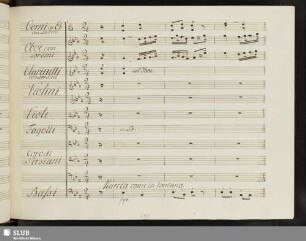 Corni in Es
con sordini
Oboi con
sordini
Clarinetti
con sordini
col Oboe
Violini
Viole
Fagotti
Coro di
Persiani
Marcia come in lontano
Bassi
SLUB
Wir führen Wissen.